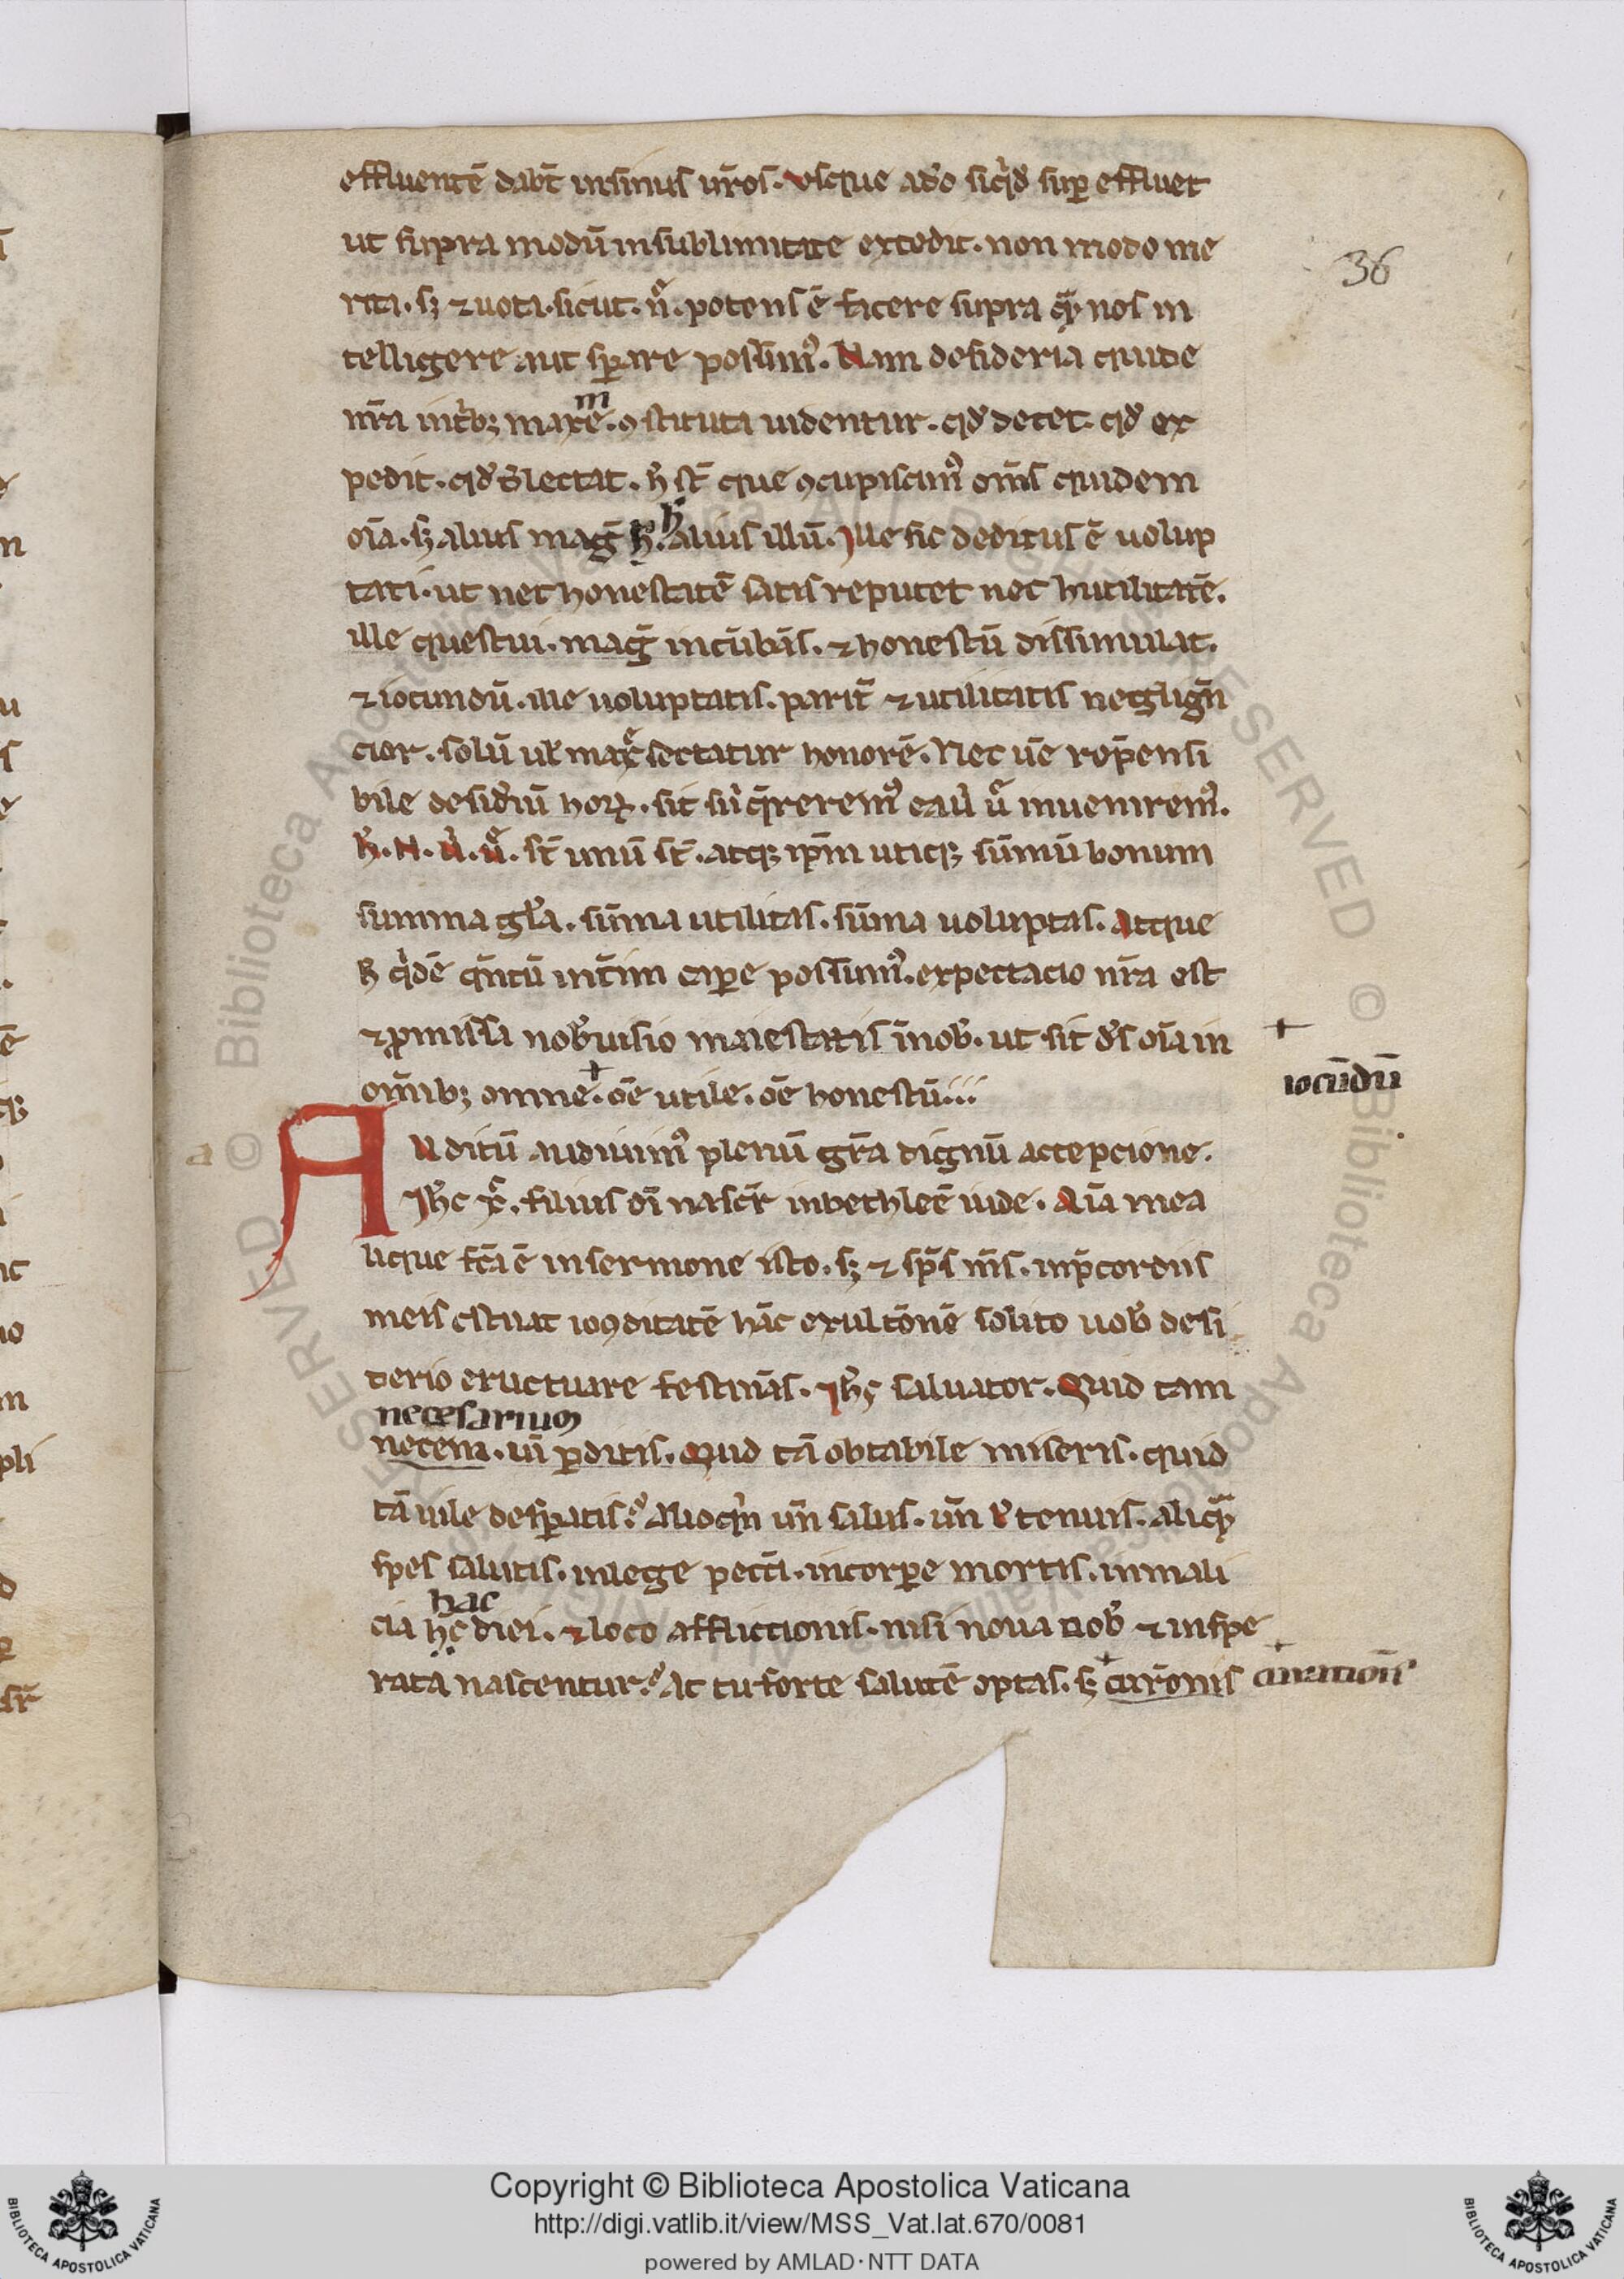 effluentē dabt̄ insinus ur̄os. vsque adeo siqͥd suꝑ effluet
ut supra modū insublimitate excedit. non modo me
rita. sꝫ ⁊ uota. sicut. n̄. potens ē facere supra quā nos in
telligere aut sꝑare possumꝰ. Nam desideria quide
nr̄a int̄bꝫ maxe. ꝯstituta uidentur. qd̛ decet. qd̛ ex
m
pedit. qd̛ delectat. h̄ st̄ que ꝯcupiscimꝰ om̄s quidem
oīa. sꝫ alius maḡ h̄. alius illū. Ille sic deditus ē uolup
h̄
tati. ut nec honestatē satis reputet nec hutilitatē.
ille questui. maḡ incūbās. ⁊ honestū dissimulat.
⁊ iocundū. ille uoluptatis. parit̄ ⁊ utilitatis neglign̄
cior. solū ul̛ maxͤ sectatur honorē. Nec ūe rep̄ensi
bile desid̛iū hoꝝ. sit si qͣreremꝰ ea ubi ūͤ inuenir̄emꝰ.
h̄. N. ū. ūͤ. st̄ unū st̄. atqꝫ ip̄m utiqꝫ sūmū bonum
summa gl̛a. sūma utilitas. sūma uoluptas. Atque
h̄ qͥdē qͣntū int̄im caꝑe possumꝰ. expectacio nr̄a est
⁊ ꝓmissa nob̛ uisio maiestatis īnob̛. ut sit ds̄ oīa in
om̄ibꝫ omne. oē utile. oē honestū...
+
+
iocūdū
a
Auditū audiuimꝰ plenū gr̄a dignū accepcione.
Ih̄c xp̄c. filius dī nascit̄ inbethleē iude. Aīa mea
lique fc̄a ē insermone isto. sꝫ ⁊ sp̄s m̄s. inp̄cordiis
meis estuat iocūditatē hāc exultōnē solito uob̛ desi
derio eructuare festinās. Ih̄c saluator. Quid tam
necesarium
necem. uī ꝑditis. Quid tā obtabile miseris. quid
tā utile desꝑatis? Alioqͥn un̄ salus. un̄ ł̛ tenuis. aliquā
spes salutis. inlege pecc̄i. incorꝑe mortis. inmali
hac
cia h̄c diei. ⁊ loco affliccionis. nisi noua nob̛ ⁊ inspe
rata nascentur? At tu forte salutē optas. sꝫ cur̄onis
+
+ curatiōis
36
Copyright © Biblioteca Apostolica Vaticana
http://digi.vatlib.it/view/MSS_Vat.lat.670/0081
powered by AMLAD·NTT DATA
BIBLIOTECA APOSTOLICA VATICANA
BIBLIOTECA APOSTOLICA VATICANA